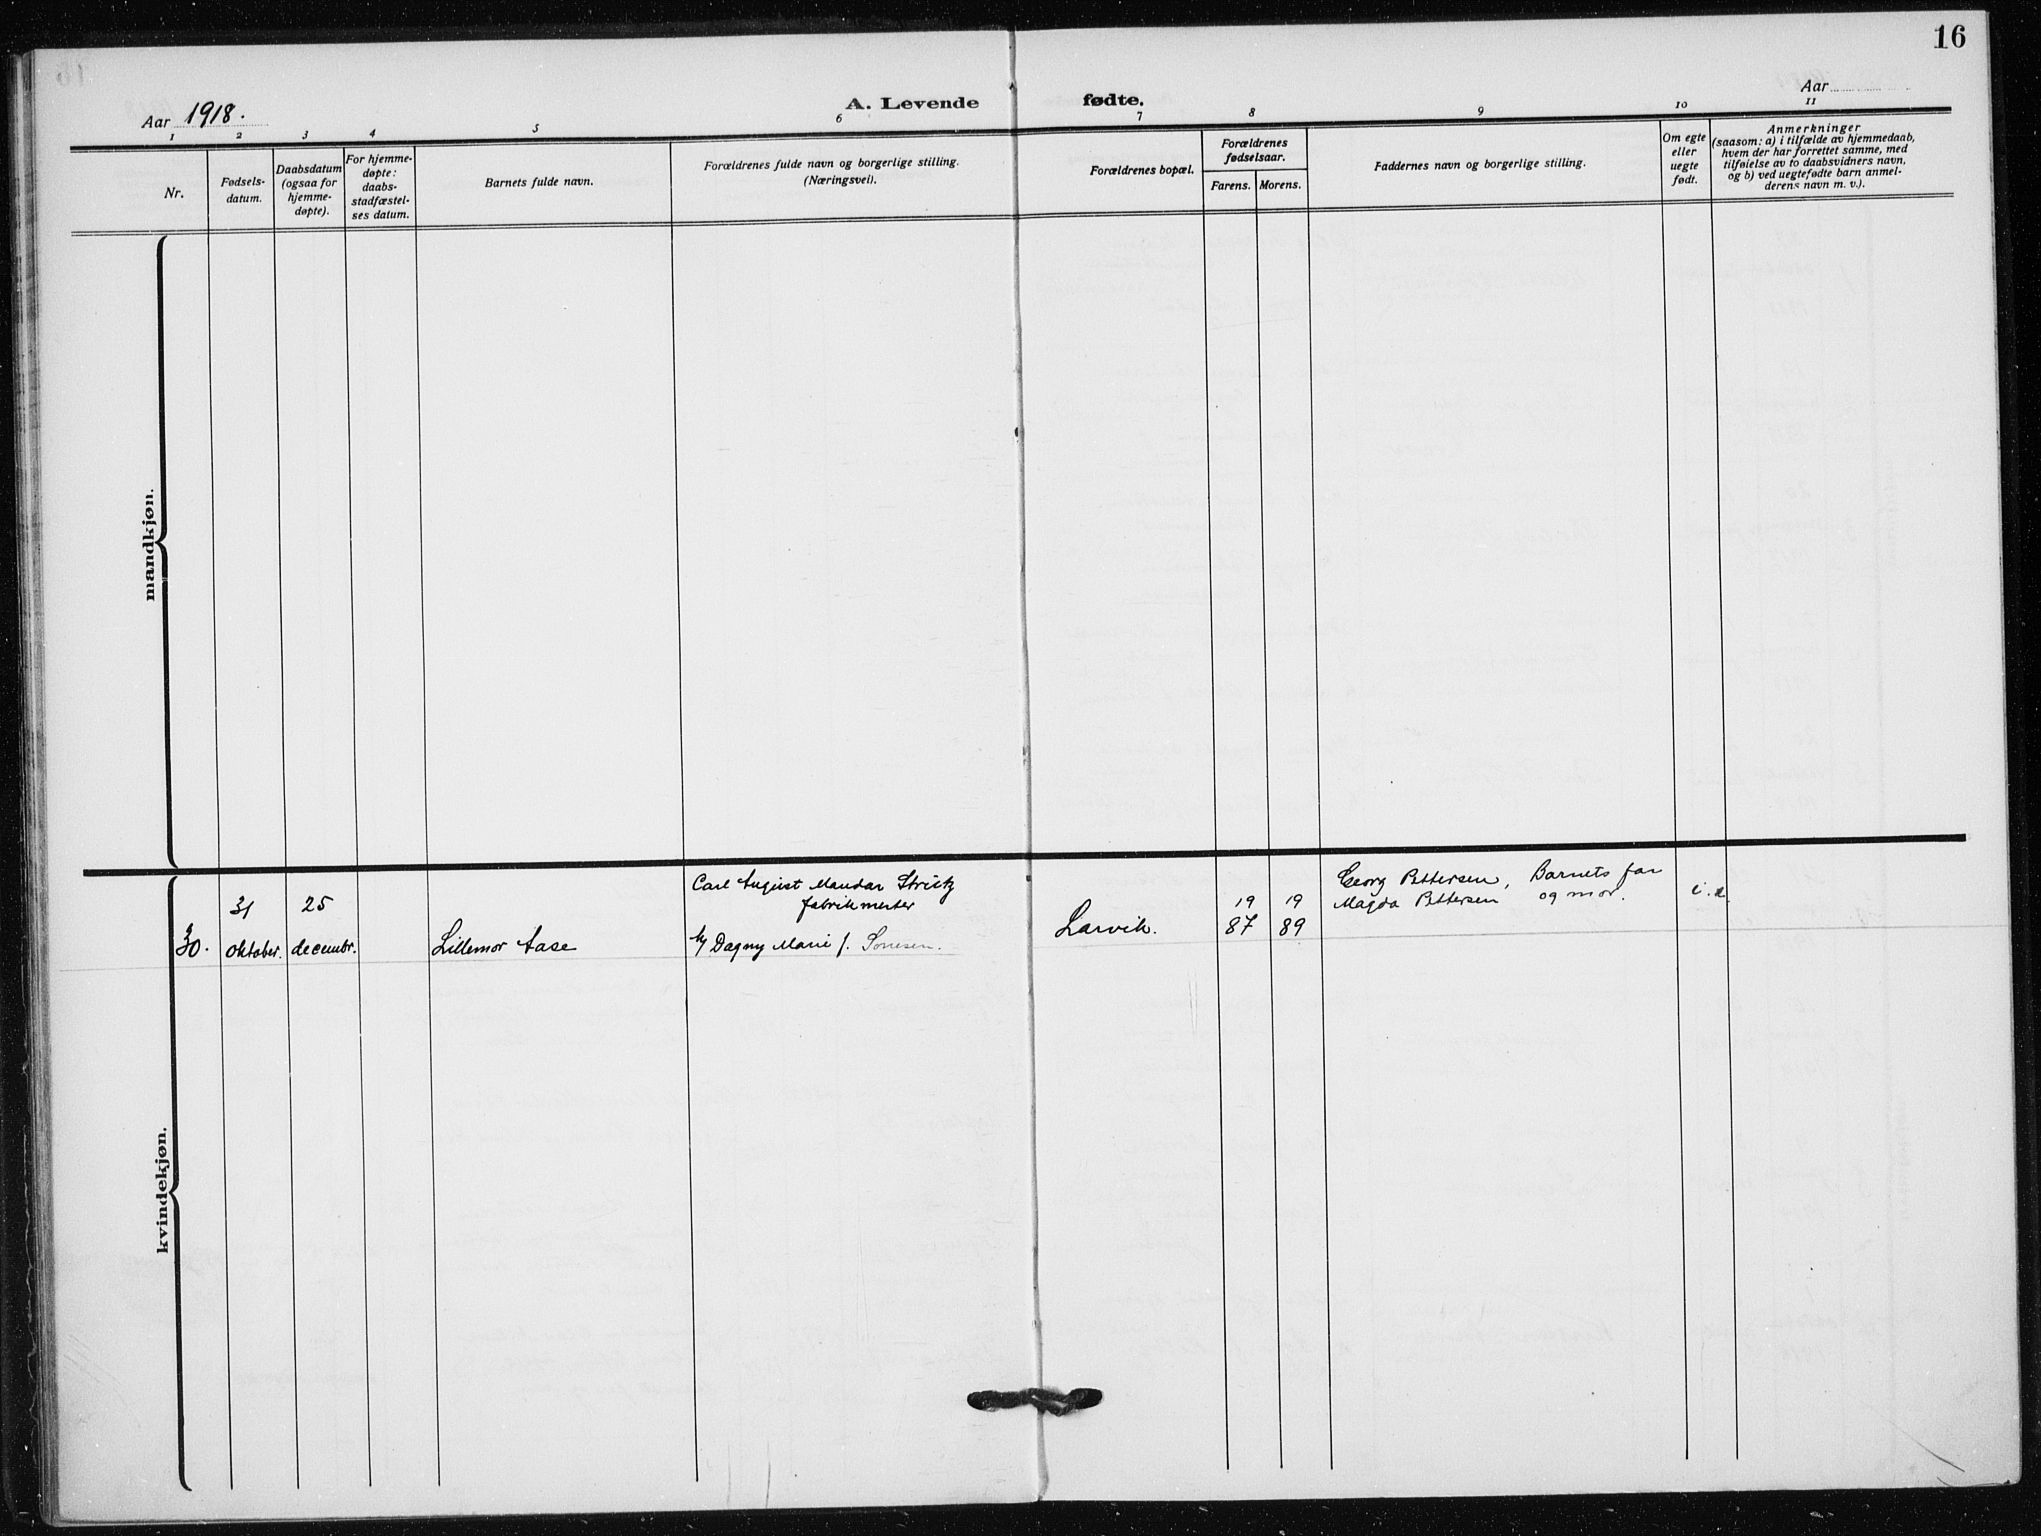 16
Aar 1918.
A. Levende fødte.
Aar
1 2 3 4 5 6 7 8 9 10 11
Nr.
Fødsels-
datum.
Daabsdatum
(ogsaa for
hjemme-
døpte).
For hjemme-
døpte:
daabs-
stadfæstel-
ses datum.
Barnets fulde navn.
Forældrenes fulde navn og borgerlige stilling.
(Næringsvei).
Forældrenes bopæl.
Forældrenes
fødselsaar.
Farens. Morens.
Faddernes navn og borgerlige stilling.
Om egte
eller
uegte
født.
Anmerkninger
(saasom: a) i tilfælde av hjemmedaab,
hvem der har forrettet samme, med
tilføielse av to daabsvidners navn,
og b) ved uegtefødte barn anmel-
derens navn m. v.).
mandkjøn.
kvindekjøn.
30.
31
oktober.
25
decembr.
Lillemor Aase
Carl August Mandar
fabrikmester
Dagny Marie f.
Larvik.
19
87
19
89
Georg Pettersen, Barnets far
Magda Pettersen og mor.